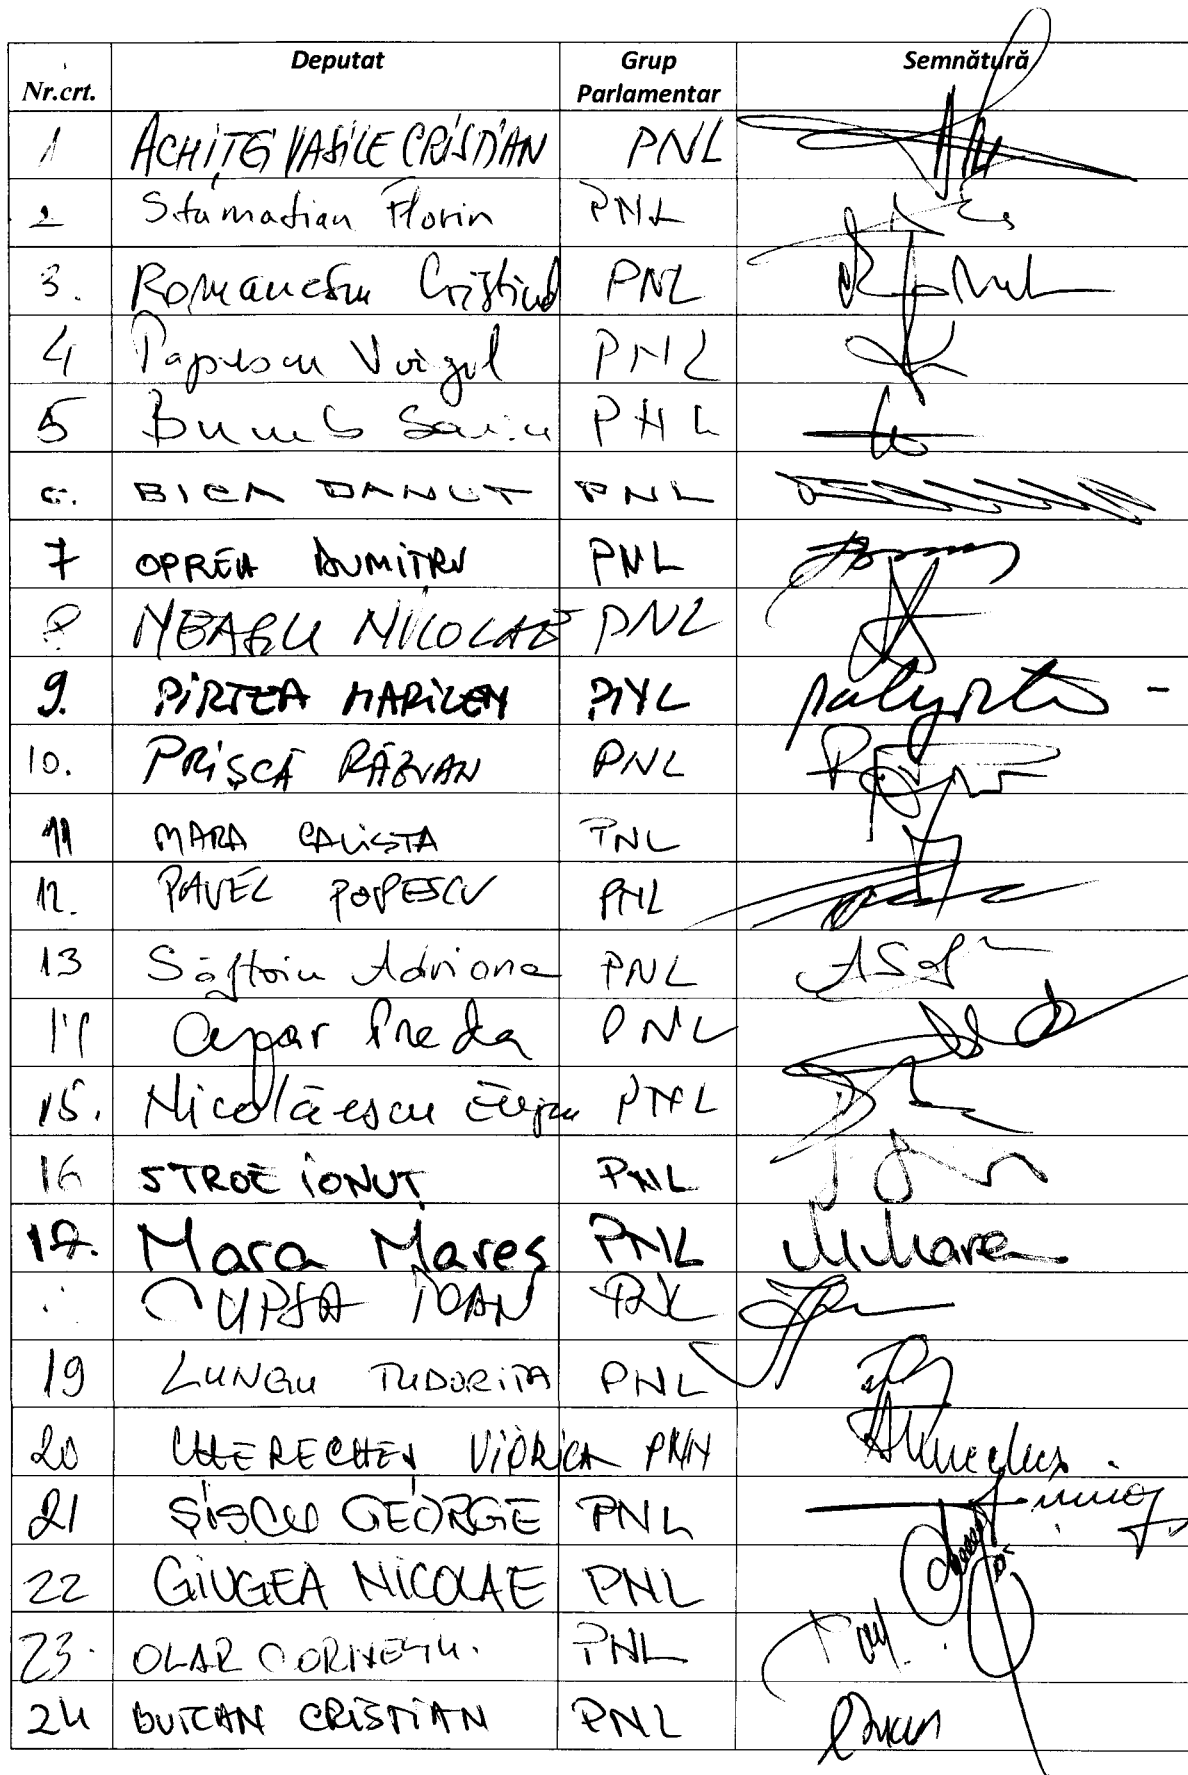 Nr.crt. Deputat Grup Parlamentar Semnătură
1 ACHIȚEI VASILE CRISTIAN PNL
2 Stamatian Florin PNL
3. Romanescu PNL
4 Popescu Virgil PNL
5 Bumb Sorin PNL
6. BICA DANUT PNL
7 OPREA DUMITRU PNL
8 NEAGU NICOLAE PNL
9. PIRTEA MARILEN PNL
10. PRIȘCĂ RĂZVAN PNL
11 MARA CALISTA PNL
12. PAVEL POPESCU PNL
13 Săftoiu Adriana PNL
14 Cezar Preda PNL
15. Nicolăescu PNL
16 STROE IONUȚ PNL
17. Mara Mareș PNL
CUPȘA IOAN PNL
19 LUNGU TUDORIȚA PNL
20 CHERECHEȘ VIORICA
21 ȘIȘCU GEORGE PNL
22 GIUGEA NICOLAE PNL
23. OLAR CORNELIU. PNL
24 BUICAN CRISTIAN PNL